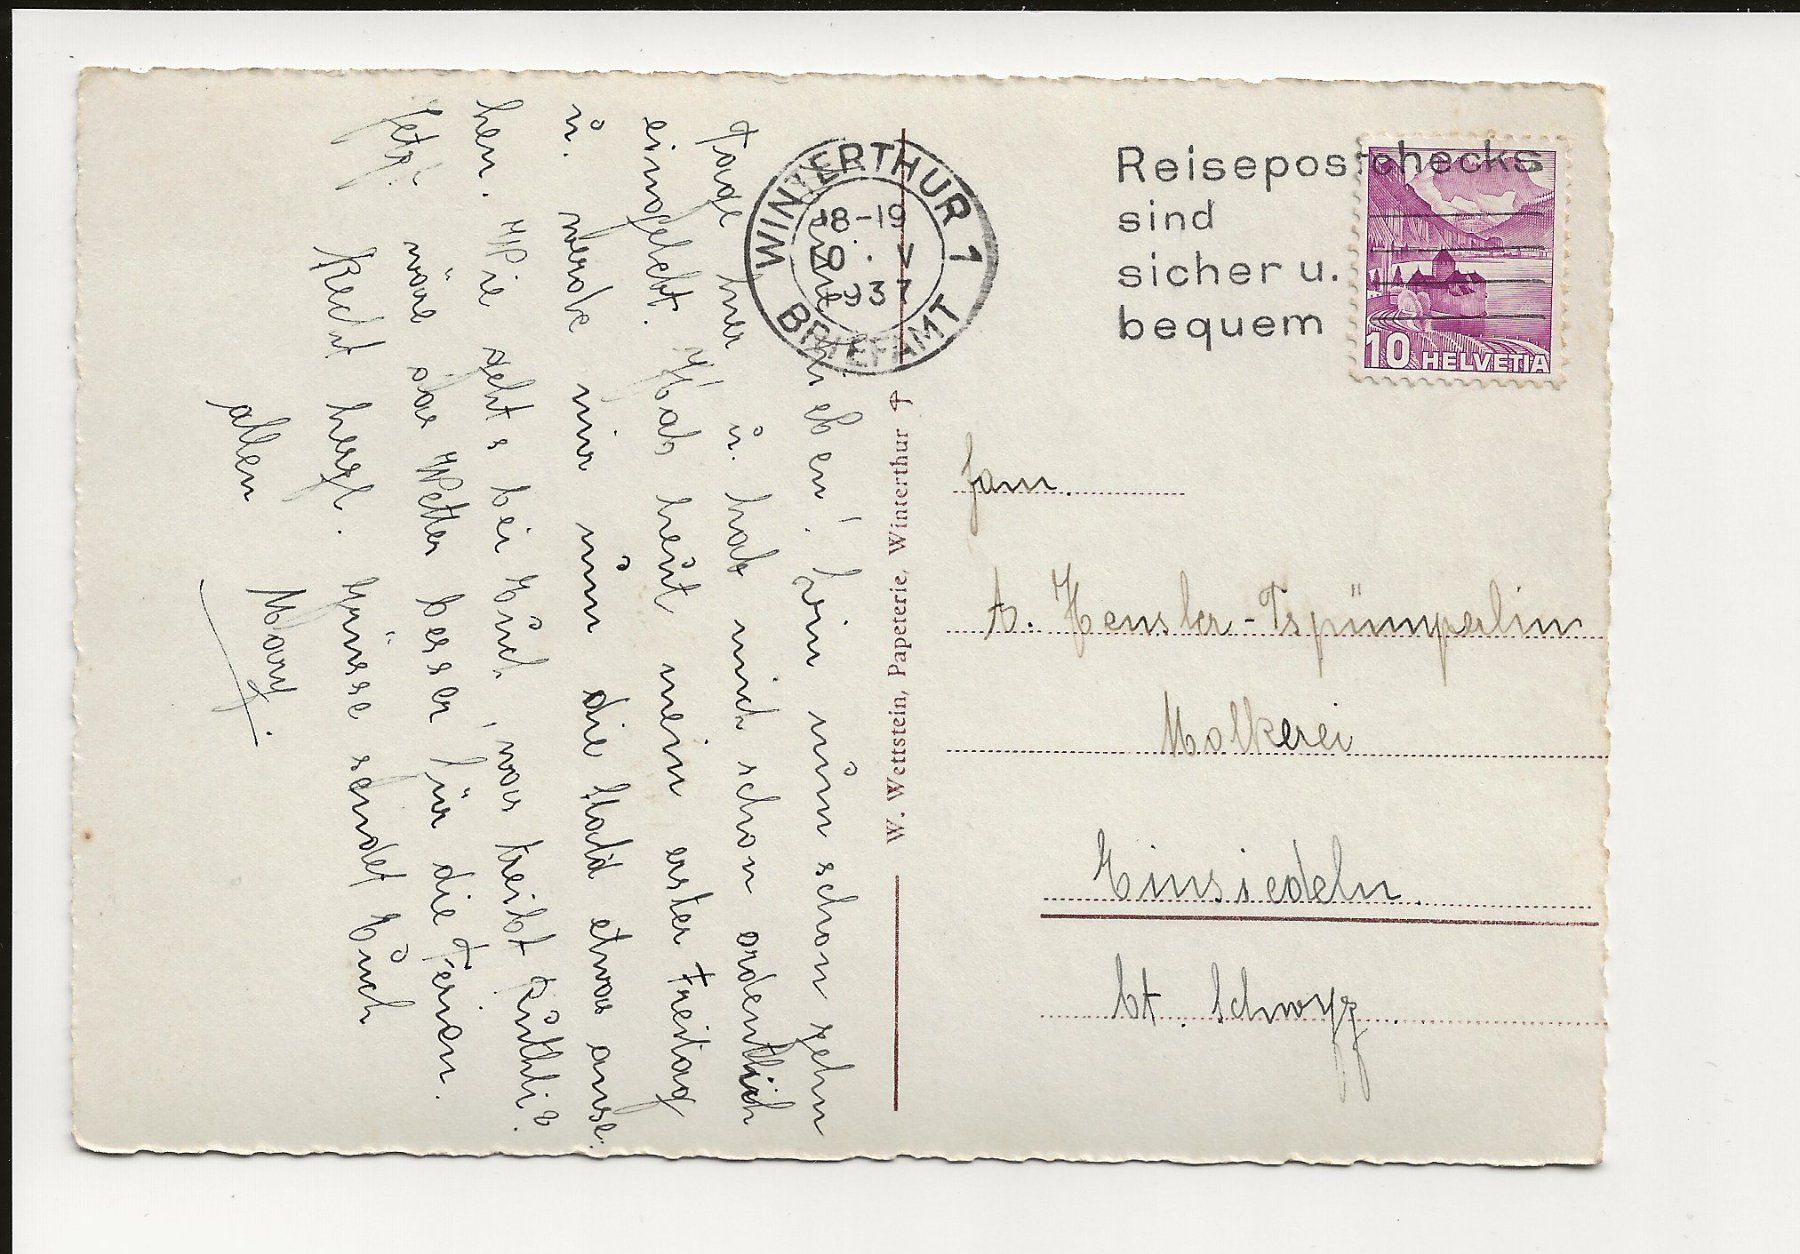 Meine Lieben! bin nun schon zehn
Tage hier u. hab mich schon ordentlich
eingelebt. Hab heut mein erster Freitag
u. werde mir nun die Stadt etwas anse-
hen. Wie geht's bei Euch, was treibt Ruthli?
Jetz wäre das Wetter besser für die Ferien.
Recht herzl. Grüsse sendet Euch
allen Mary.
WINTERTHUR 1
18-19
V
1937
BRIEFAMT
Reisepostchecks
sind
sicher u.
bequem
10 HELVETIA
W. Wettstein, Papeterie, Winterthur
Fam.
A. Hensler-Tspümperlin
Molkerei
Einsiedeln.
Kt. Schwyz